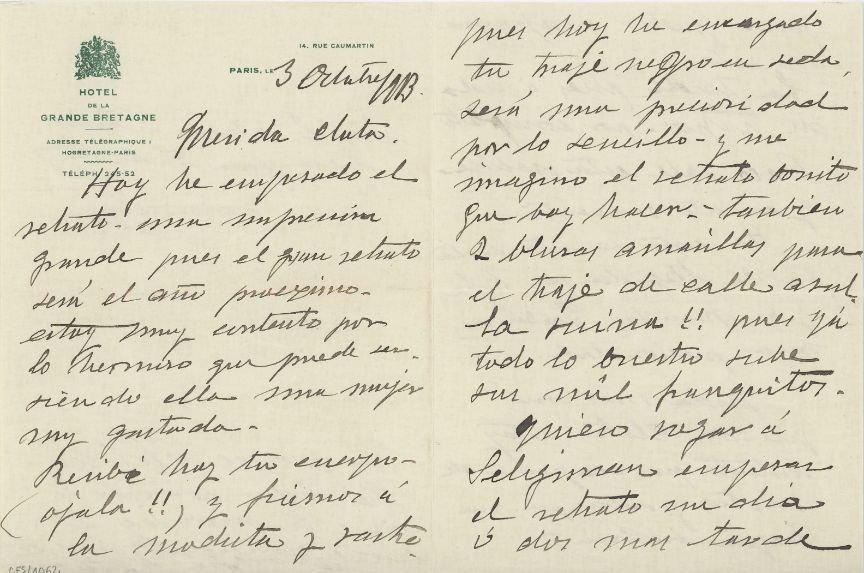 HOTEL
DE LA
GRANDE BRETAGNE
ADRESSE TÉLÉGRAPHIQUE:
HOGRETAGNE-PARIS
TÉLÉPH. 265-52
14, RUE CAUMARTIN
PARIS, LE 3 Octubre 1913.
Querida Clota.
Hoy he empesado el
retrato - una impresion
grande pues el gran retrato
será el año proximo -
estoy muy contento por
lo hermoso que puede ser -
siendo ella una mujer
muy gastada -
Recibi hoy tu cuerpo -
(ojala!!) y fuimos á
la modista y sastre
pues hoy he encargado
tu traje negro en seda,
será una preciosidad
por lo sencillo - y me
imagino el retrato bonito
que voy hacer - tambien
2 blusas amarillas para
el traje de calle asul -
la ruina!! pues yá
todo lo vuestro sube
sus mil franquitos -
quiero rogar á
Seligman empesar
el retrato un dia
ó dos mas tarde
CFS/1062